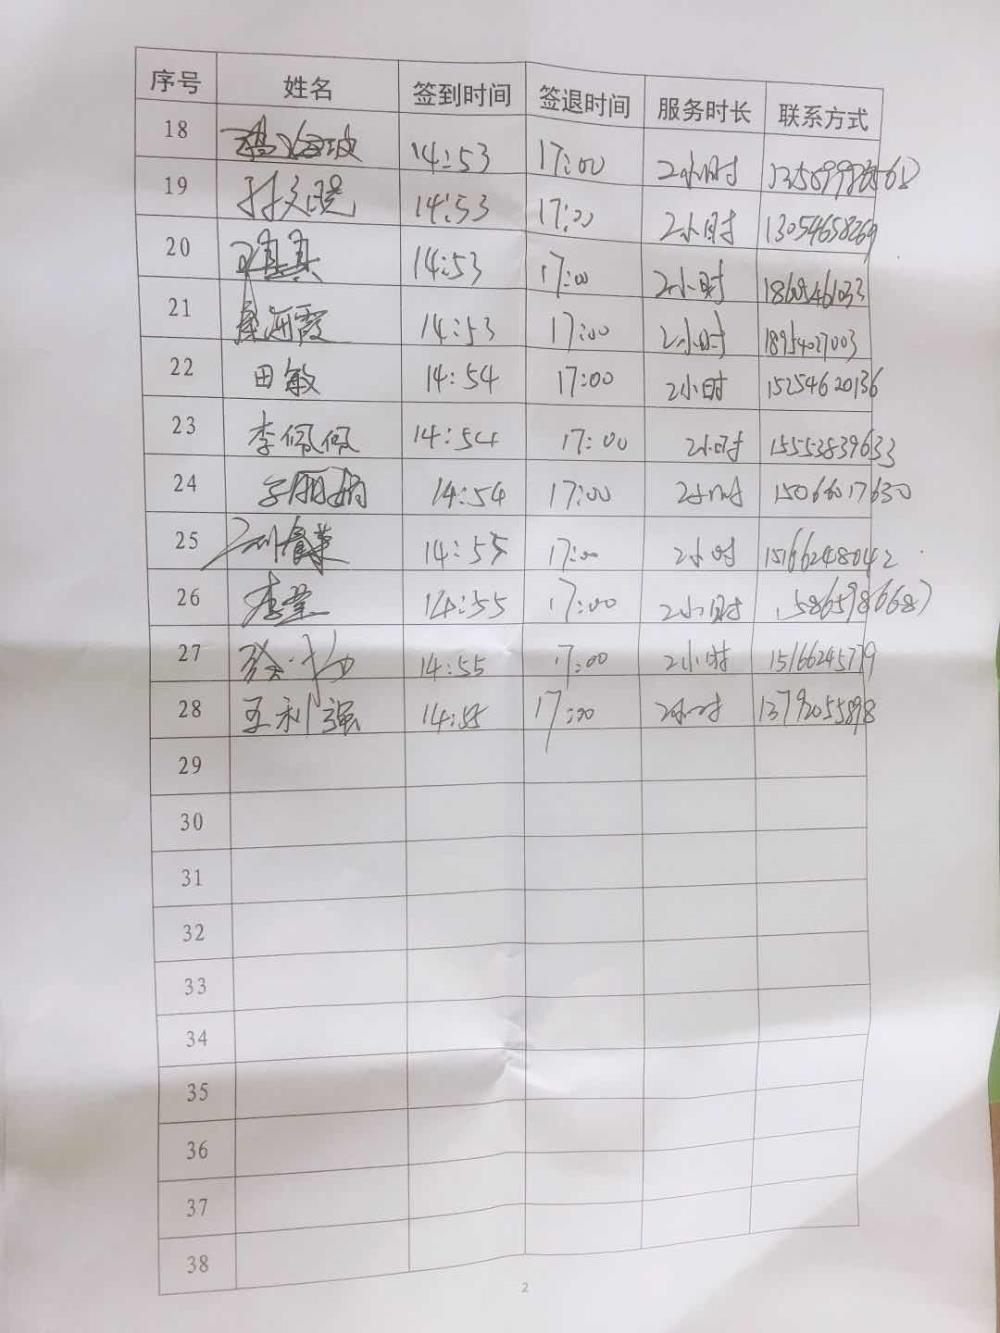 序号 姓名 签到时间 签退时间 服务时长 联系方式
18 14:53 17:00 2小时
19 孙文晓 14:53 17:00 2小时 13054658269
20 14:53 17:00 2小时 18605461033
21 海霞 14:53 17:00 2小时 18954027003
22 田敏 14:54 17:00 2小时 15254620136
23 李佩佩 14:54 17:00 2小时 15553839633
24 14:54 17:00 2小时 15066017630
25 14:55 17:00 2小时 15166248042
26 14:55 17:00 2小时 15865986687
27 14:55 17:00 2小时 15166245779
28 王利强 14:55 17:00 2小时 13792055898
29
30
31
32
33
34
35
36
37
38
2